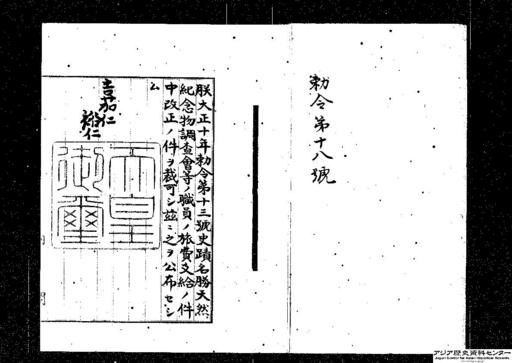 勅令第十八號
朕大正十年勅令第十三號史蹟名勝天然
紀念物調査會等ノ職員ノ旅費支給ノ件
中改正ノ件ヲ裁可シ茲ニ之ヲ公布セシ
ム
嘉仁
裕仁
天皇
御璽
アジア歴史資料センター
Japan Center for Asian Historical Records